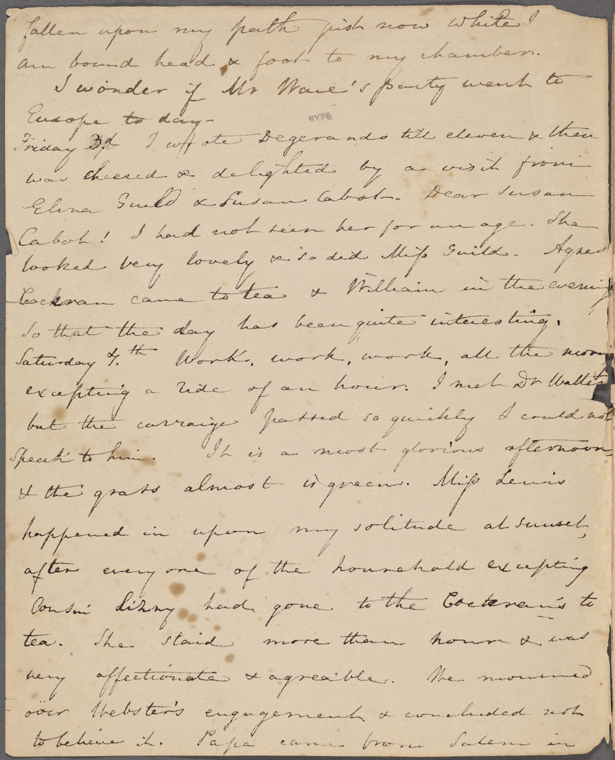 fallen upon my path just now while I
am bound head & foot to my chamber.
I wonder if Mr Ware's party went to
Europe to day -
NYPL
Friday 3d. I wrote Degerando till eleven & then
was cheered & delighted by a visit from
Eliza Guild & Susan Cabot. Dear Susan
Cabot! I had not seen her for an age. She
looked very lovely & so did Miss Guild. Agnes
Cochran came to tea & William in the evening
so that the day has been quite interesting.
Saturday 4.th Work, work, work, all the morn
excepting a ride of an hour. I met Dr
but the carraige passed so quickly I could not
speak to him. It is a most glorious afternoon,
& the grass almost is green. Miss Lewis
happened in upon my solitude at sunset,
after everyone of the household excepting
Cousin Lizzy had gone to the Cochran's to
tea. She staid more than hour & was
very affectionate & agreable. We mourned
over Webster's engagement & concluded not
to believe it. Papa came from Salem in